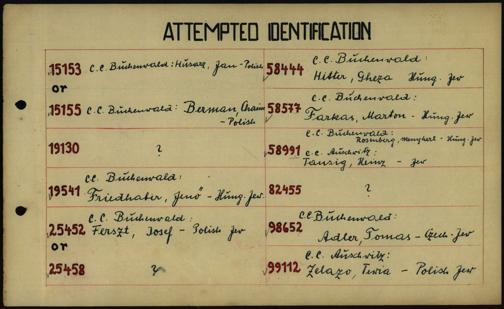 ATTEMPTED IDENTIFICATION
15153 C.C. Buchenwald: Husarz, Jan - Polish
or
15155 C.C. Buchenwald: Berman, Chaim
- Polish
19130 ?
19541 C.C. Buchenwald:
Friedhaber, Jenö - Hung. Jew
25452 C.C. Buchenwald:
Ferszt, Josef - Polish Jew
or
25458 ?
58444 C.C. Buchenwald:
Hitler, Gheza Hung. Jew
58577 C.C. Buchenwald:
Farkas, Marton - Hung. Jew
58991 C.C. Buchenwald:
Rosenberg, - Hung. Jew
C.C. Auschwitz:
Tanzig, Heinz - Jew
82455 ?
98652 C.C. Buchenwald:
Adler, Tomas - Czech. Jew
99112 C.C. Auschwitz:
Zelazo, - Polish Jew